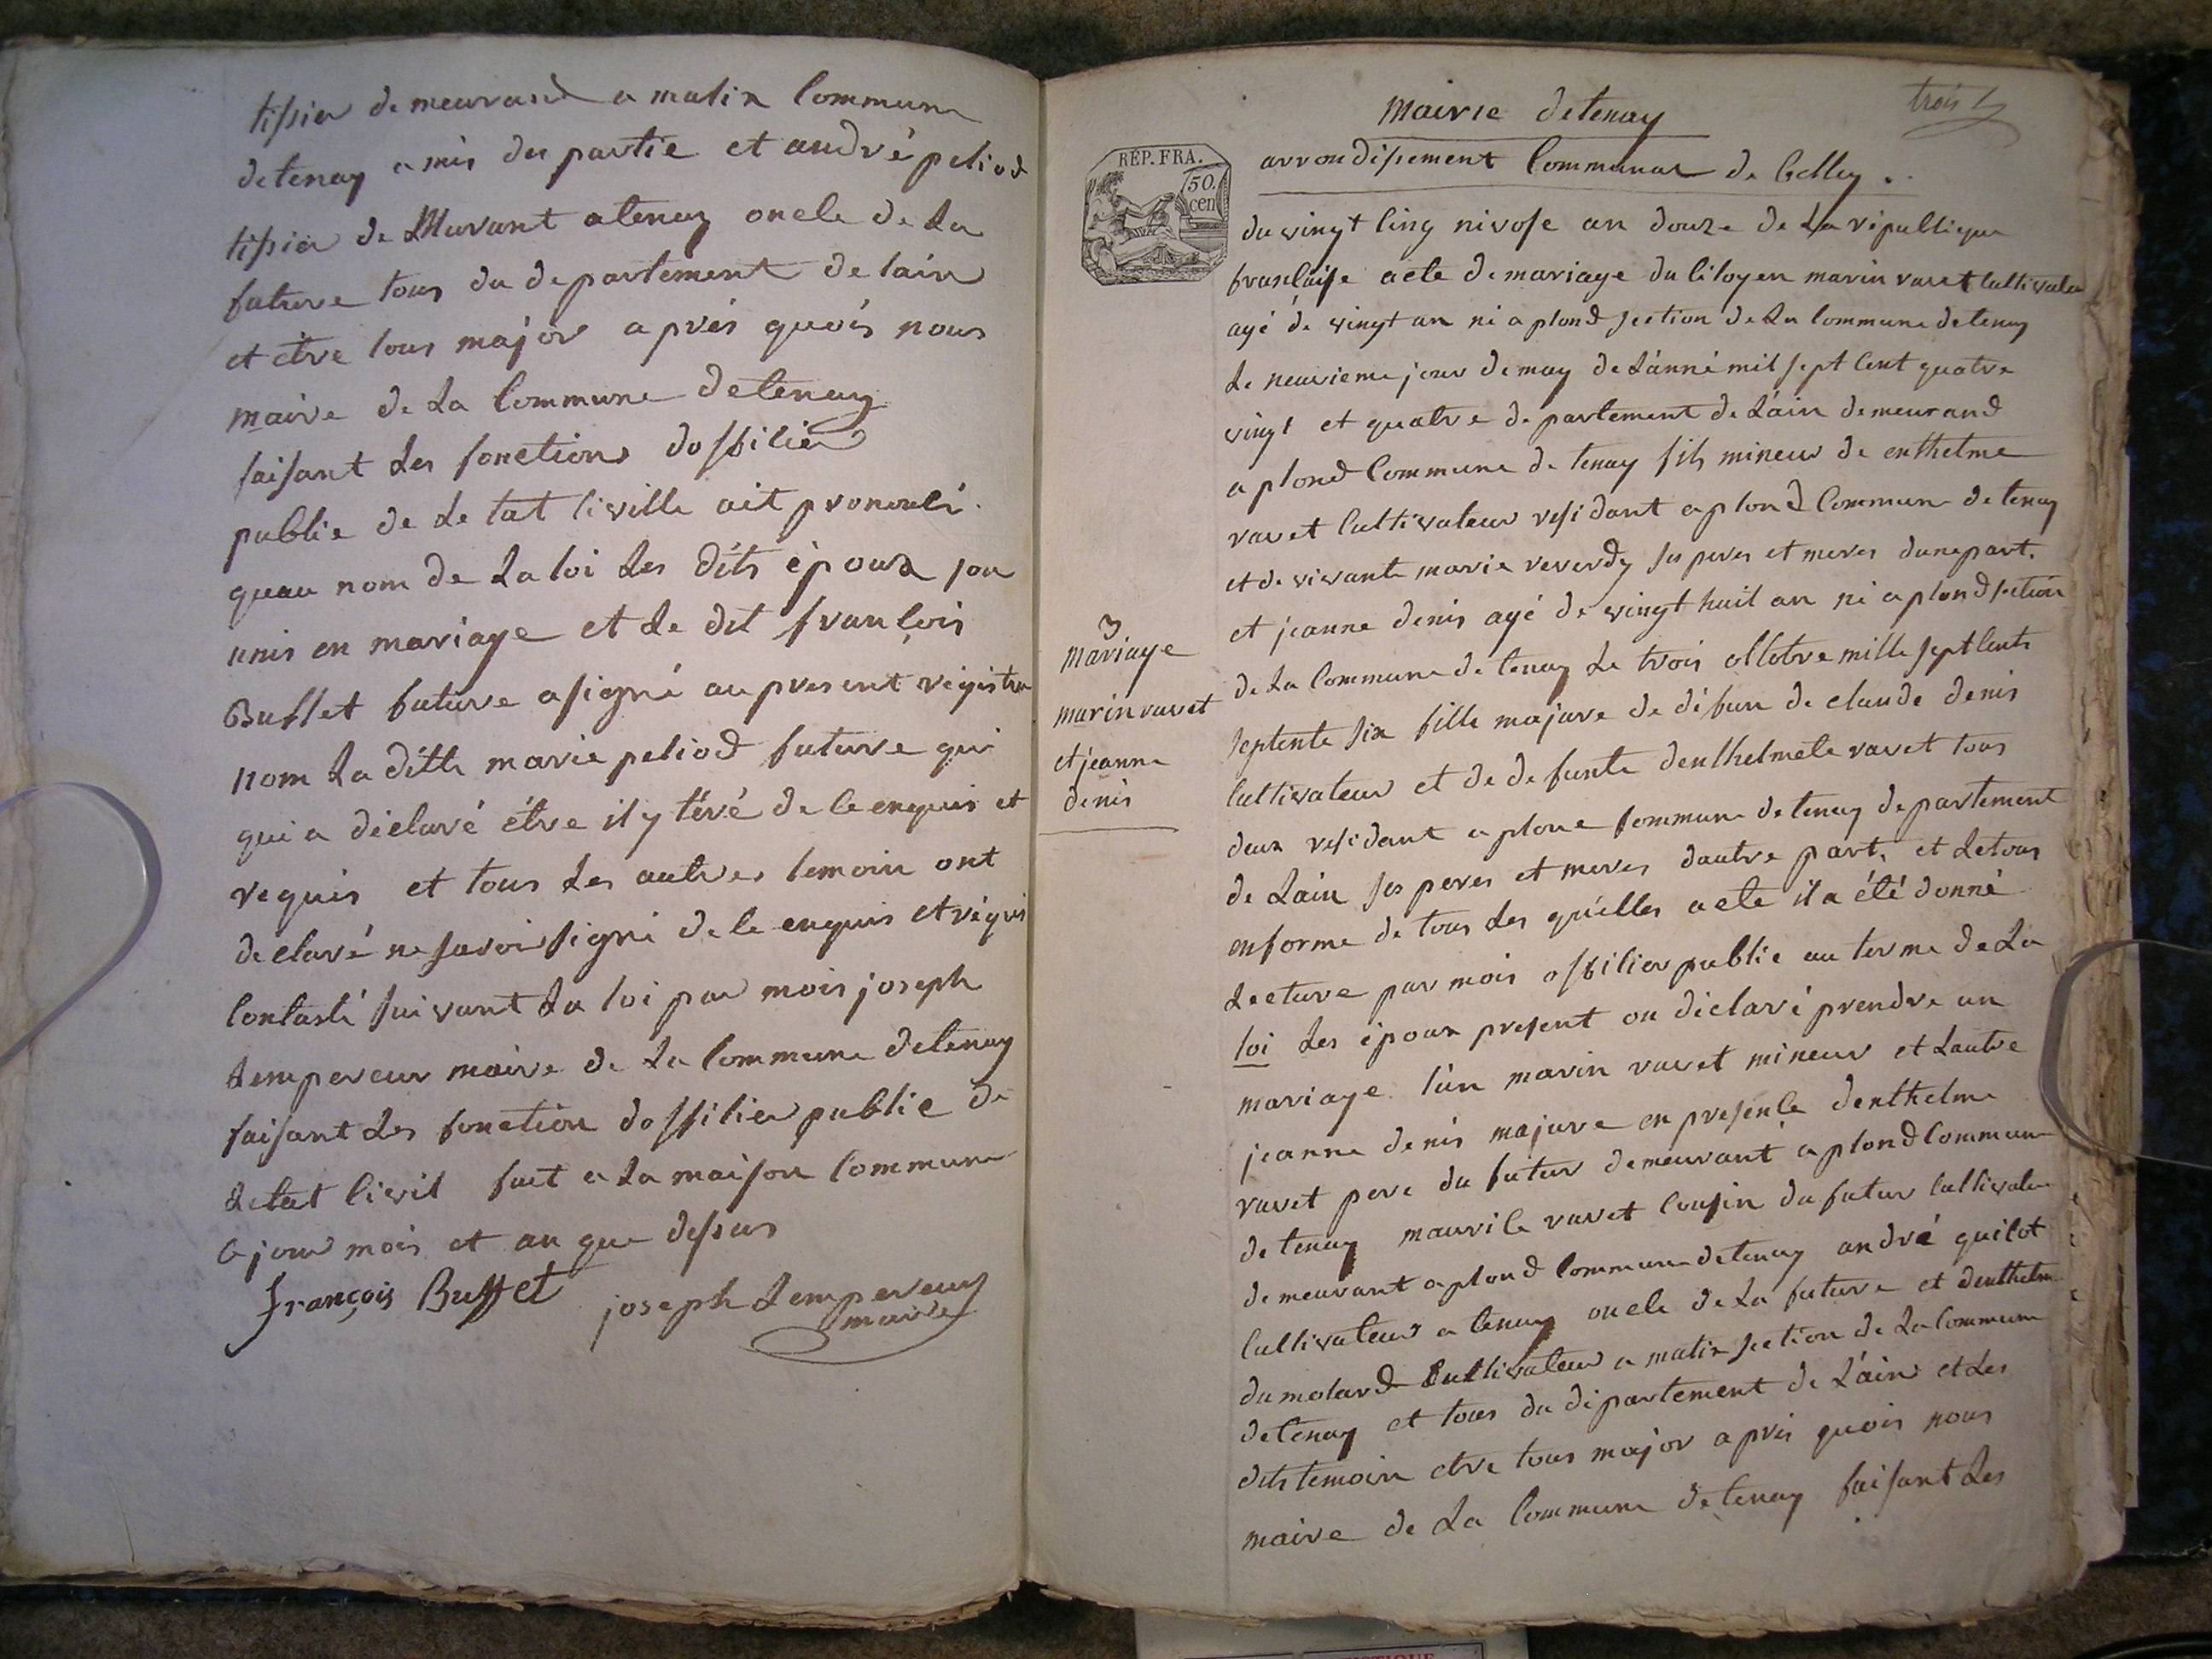 tissier demeurand a matix Commune
detenay amis des partie et andré peliod
tissier de Murant atenay oncle de La
future tous du departement de lain
et être tous major aprés quoïs nous
maire de La Commune detenay
faisant Les fonctions dossicier
public de Le tat Civille ait prononcé
quau nom de La loi Les dits èpoux son
unis en mariage et Le dit françois
Buffet future asigné au present régistre
nom La ditte marie peliod future qui
qui a déclaré étre il y téré de le enquis et
requis et tous Les autres temoin ont
declaré ne savoir signé de le enquis et réquis
Contasté suivant La loi par mois joseph
Lempereur maire de La Commune detenay
faisant Les fonction dofficier public de
Letat Civil fait a La maison Commune
Ce jour mois et an que dessus
françois Buffet joseph Lempereur
maire
trois
Mairie detenay
arrondissement Communal de belley
RÉP. FRA.
50.
cen
du vingt Cinq nivose an douze de La république
francaise acte de mariage du Citoyen marin ravet Cultivateur
agé de vingt an né a plond section de La Commune detenay
Le neuvieme jour de may de Lánné mil sept Cent quatre
vingt et quatre departement de Láin demeurand
a plond Commune de tenay fils mineur de enthelme
ravet Cultivateur residant a plond Commune de tenay
et de vivante marie reverdy ses peres et meres dunepart.
et jeanne denis agé de vingt huit an né a plond section
de La Commune de tenay Le trois octobre mille sept Cents
septente six fille majure de défun de claude denis
Cultivateur et de defunte denthelmete ravet tous
deux residant a plone Commune detenay departement
de Lain ses peres et meres dautre part, et detous
enforme de tous Les quélles acte il a été donné
Lecture par mois officier public au terme de La
loi Les époux present on déclaré prendre un
mariage lún marin ravet mineur et Lautre
jeanne denis majure en presence denthelme
ravet pere du futur demeurant a plond Commune
de tenay maurice ravet Cousin du futur Cultivateur
demeurant a plond Commune detenay andré guilot
Cultivateur a tenay oncle de La future et denthelme
dumolard Cultivateur a matix section de La Commune
detenay et tous du département de Láin et Les
dits temoin etre tous major aprés quois nous
maire de La Commune detenay faisant Les
3
mariage
marin ravet
et jeanne
denis